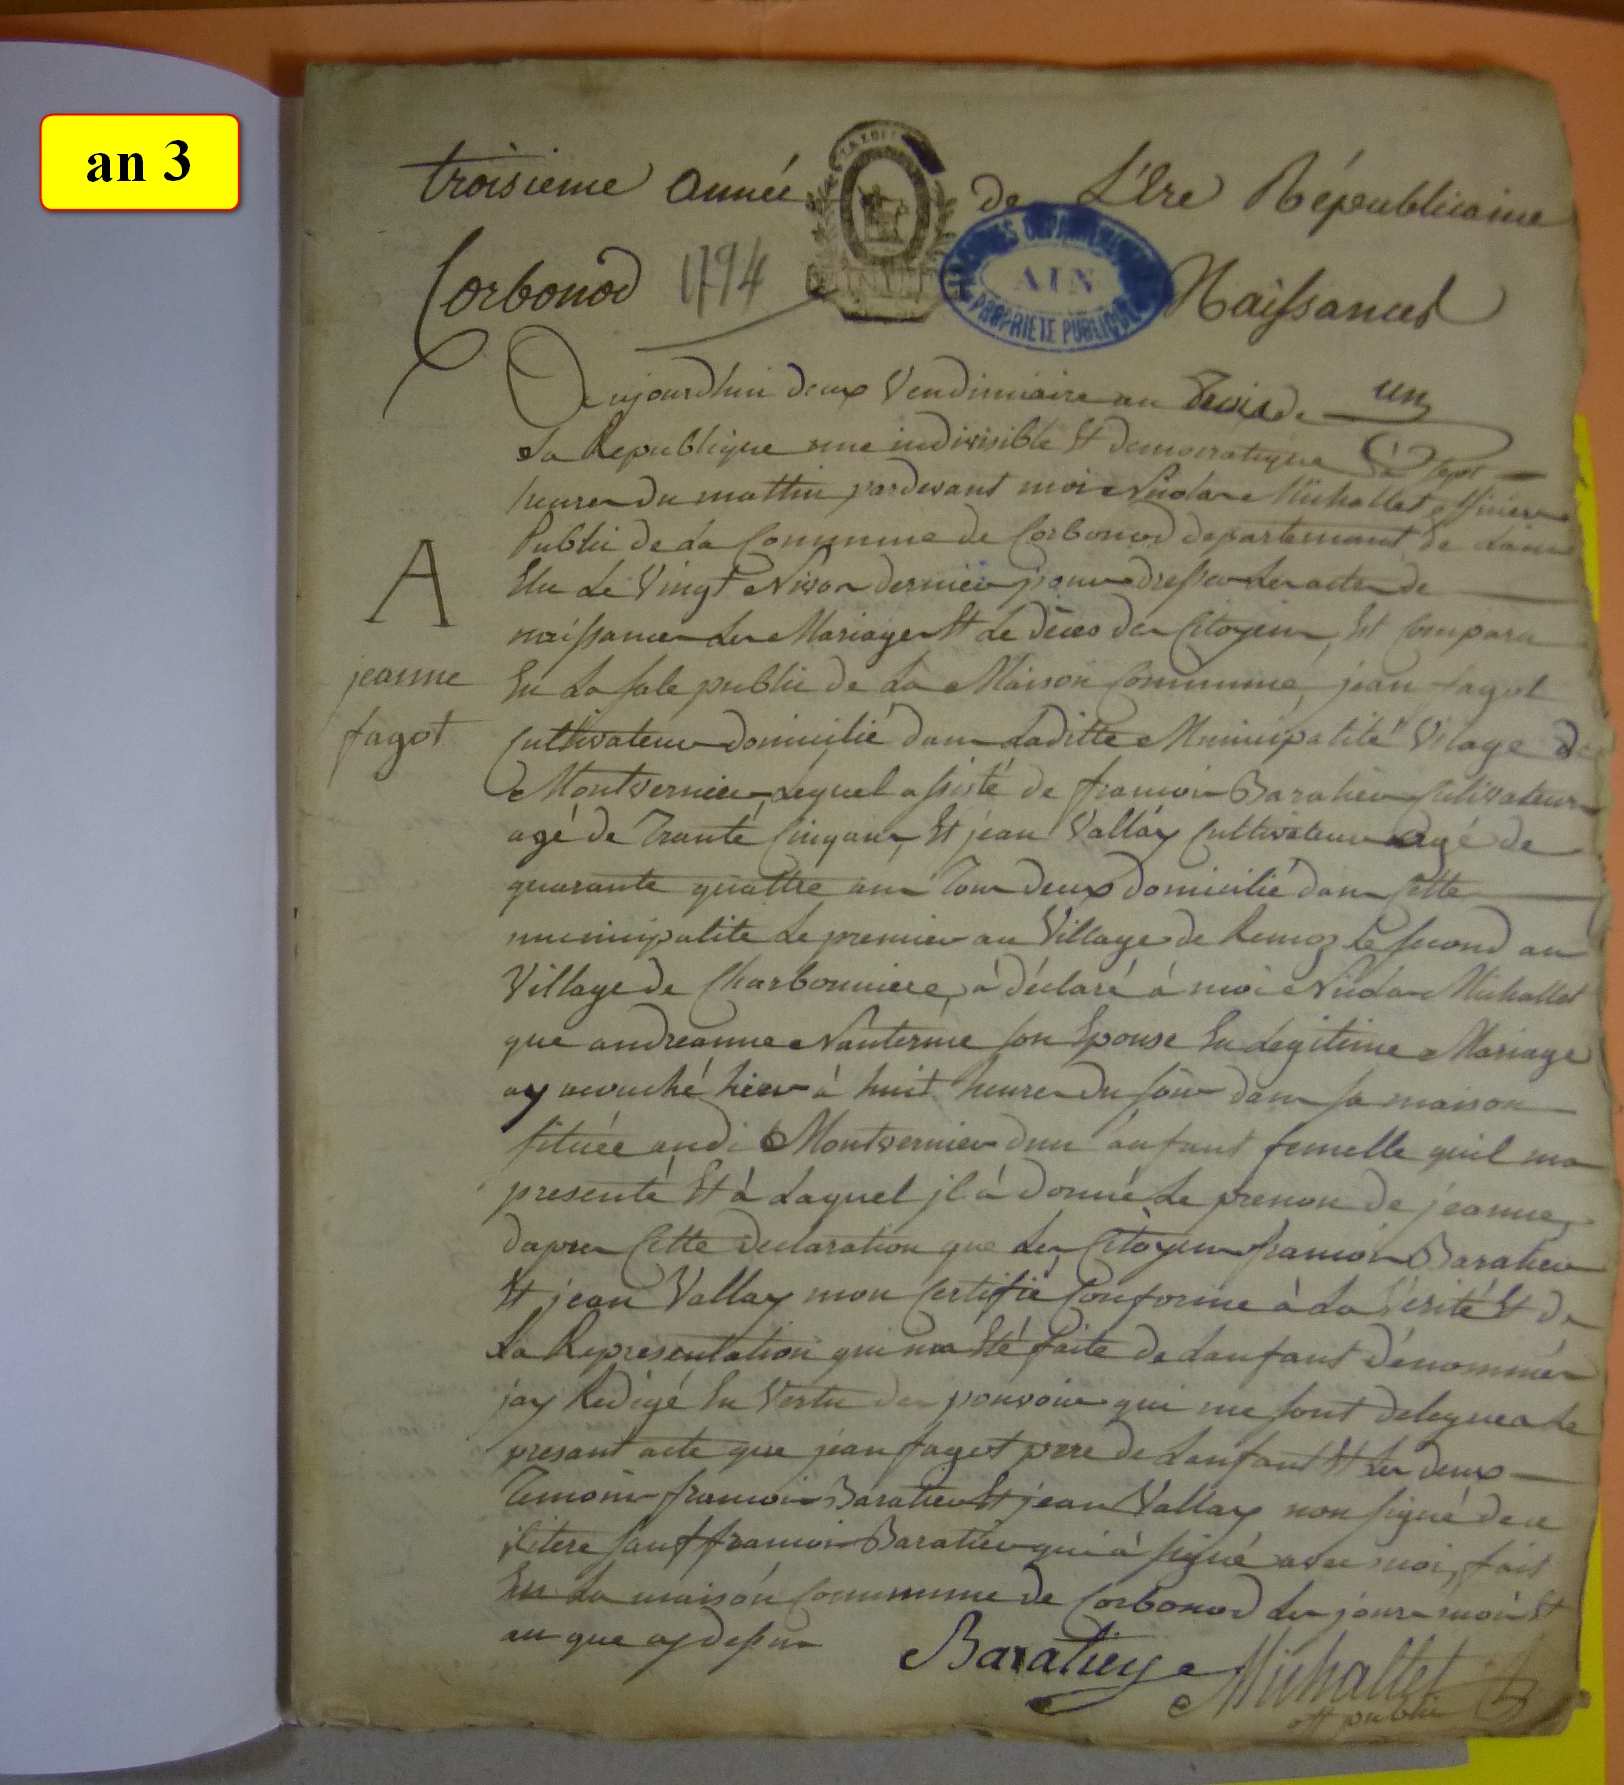 an 3
troisieme année de L'Ere Républicaine
Corbonod 1794 Naissances
ARCHIVES DEPARTEMENTALES
AIN
PROPRIETE PUBLIQUE
Aujourdhui deux Vendimiaire an trois de un
La Republique une indivisible Et democratique à sept
heures du mattin pardevant moi Nicolas Michallet officier
Public de La Commune de Corbonod departement de Lain
Elu Le Vingt Nivos dernier pour dresser Les actes de
naissances Les Mariages Et Le déces des Citoyens, Et Comparu
En La sale public de La Maison Commune, jean fagot
Cultivateur domicilié dans Laditte Municipalité Vilage de
Montvernier, Lequel assisté de francois Baratier Cultivateur
agé de Trante Cinq ans, Et jean Vallay Cultivateur agé de
quarante quattre ans Tous deux domicilié dans Cette
municipalite Le premier au Village de Remoz Le second au
Village de Charbonniere, à déclaré à moi Nicolas Michallet
que andreanne Nanterme son Epouse En Legitime Mariage
ay acouché hier à huit heures du soir dans sa maison
située audit Montvernier dun anfant femelle quil ma
presenté Et à Laquel jl à donné Le prenon de jeanne,
dapres Cette declaration que Les Citoyens francois Baratier
Et jean Vallay mon Certifié Conforme à La Vérité Et de
La Representation qui ma Eté faite de Lanfant dénommée
jay Redigé En Vertu des pouvoirs qui me sont delegues Le
presant acte que jean fagot pere de Lanfant Et Les deux
Temoins francois Baratier Et jean Vallay non signé de ce
sauf francois Baratier qui à signé avec moi, fait
En La maison Commune de Corbonod Les jours mois Et
an que cy dessus
A
jeanne
fagot
Baratier Michallet
off public